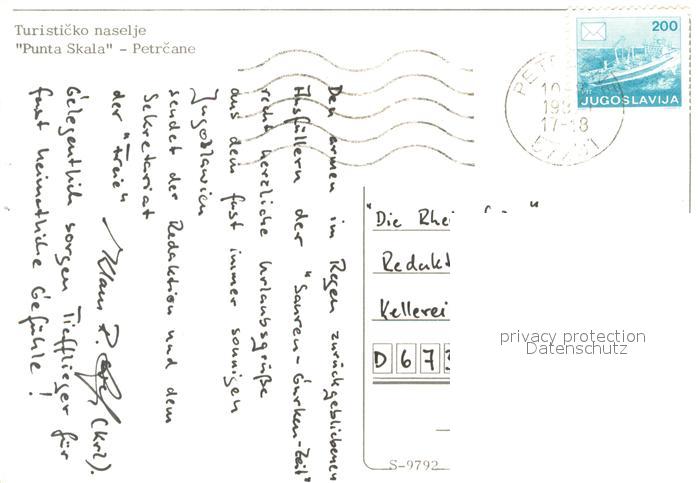 Turističko naselje
"Punta Skala" – Petrčane
200
JUGOSLAVIJA
17-18
Den armen im Regen zurückgebliebenen
Ausfüllern der "Sauren-Gurken-Zeit"
recht herzliche Urlaubsgrüße
aus dem fast immer sonnigen
Jugoslawien
sendet der Redaktion und dem
Sekretariat
der "Treie"
Klaus P. (krz).
Gelegentlich sorgen Tiefflieger für
fast heimatliche Gefühle!
"Die Rhei
Redakt
Kellerei
D 673
privacy protection
Datenschutz
S-9792